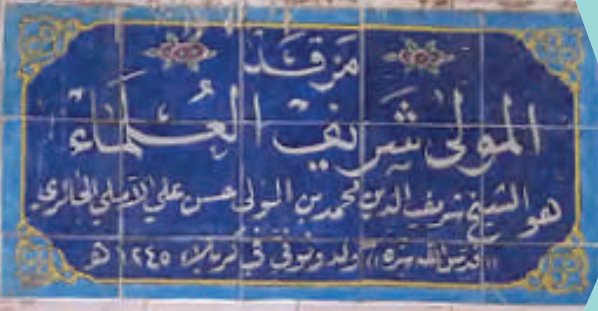 مَرْقَدُ
المولى شَريفُ العُلَمَاءْ
هو الشيخ شريف الدين محمد بن المولى حسن علي الآملي الحائري
((قدس الله سره)) ولد وتوفي في كربلاء ١٢٤٥ هـ